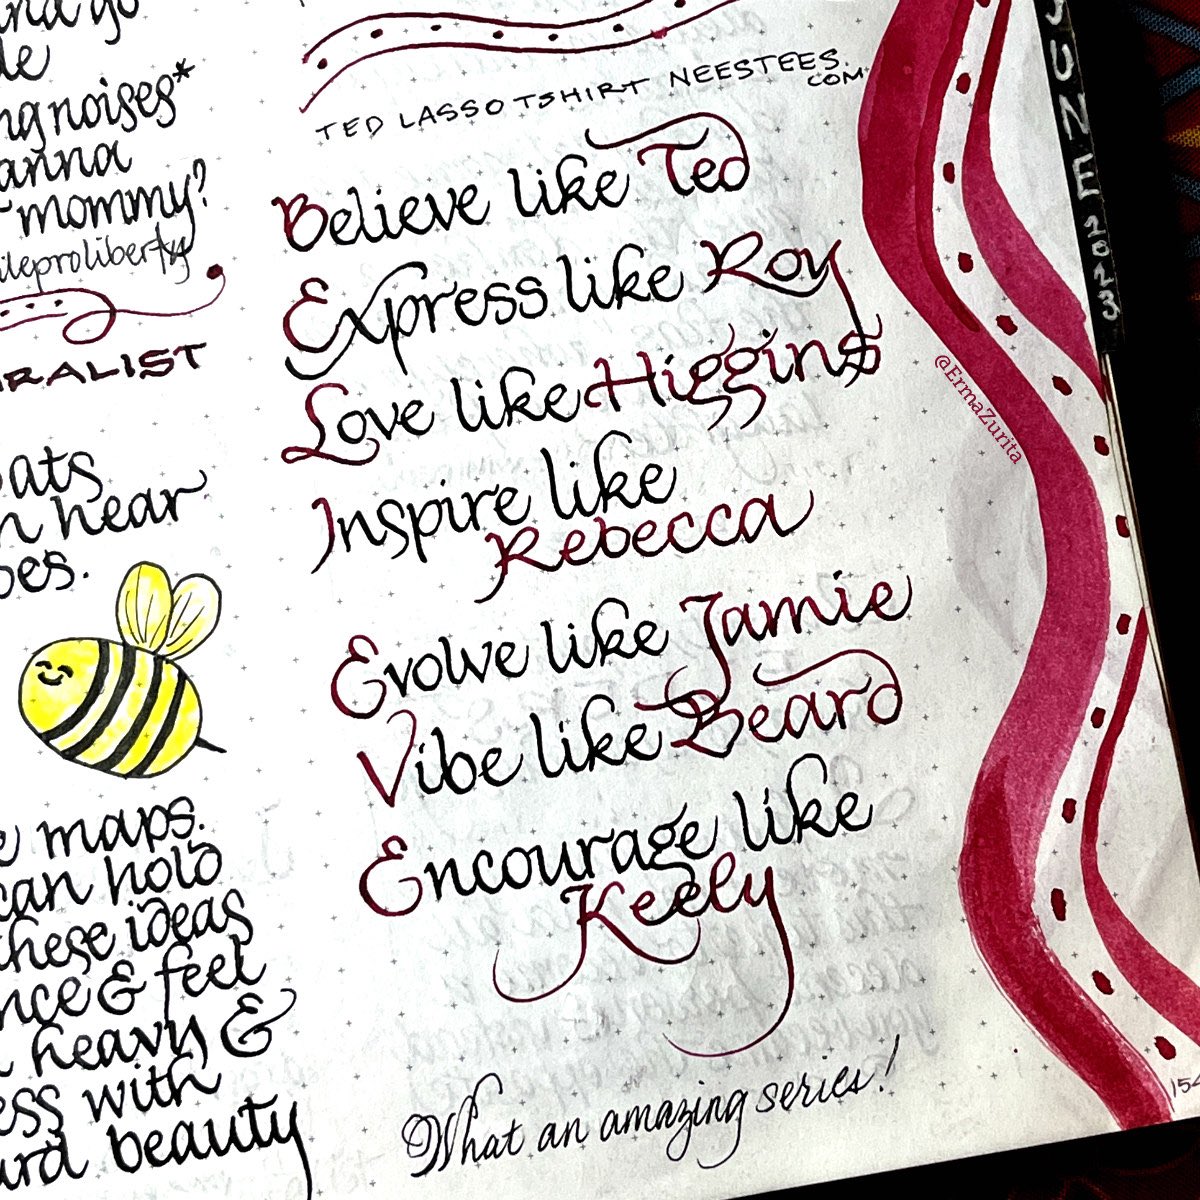 and go
de
ng noises*
anna
mommy?
ileproliberty
RALIST
oats
n hear
oes.
e maps.
can hold
these ideas
nce & feel
heavy &
ess with
ard beauty
TED LASSO TSHIRT NEESTEES.
COM
Believe like Ted
Express like Roy
Love like Higgins
Inspire like
Rebecca
Evolve like Jamie
Vibe like Beard
Encourage like
Keely
What an amazing series!
@ErmaZurita
JUNE 2023
154